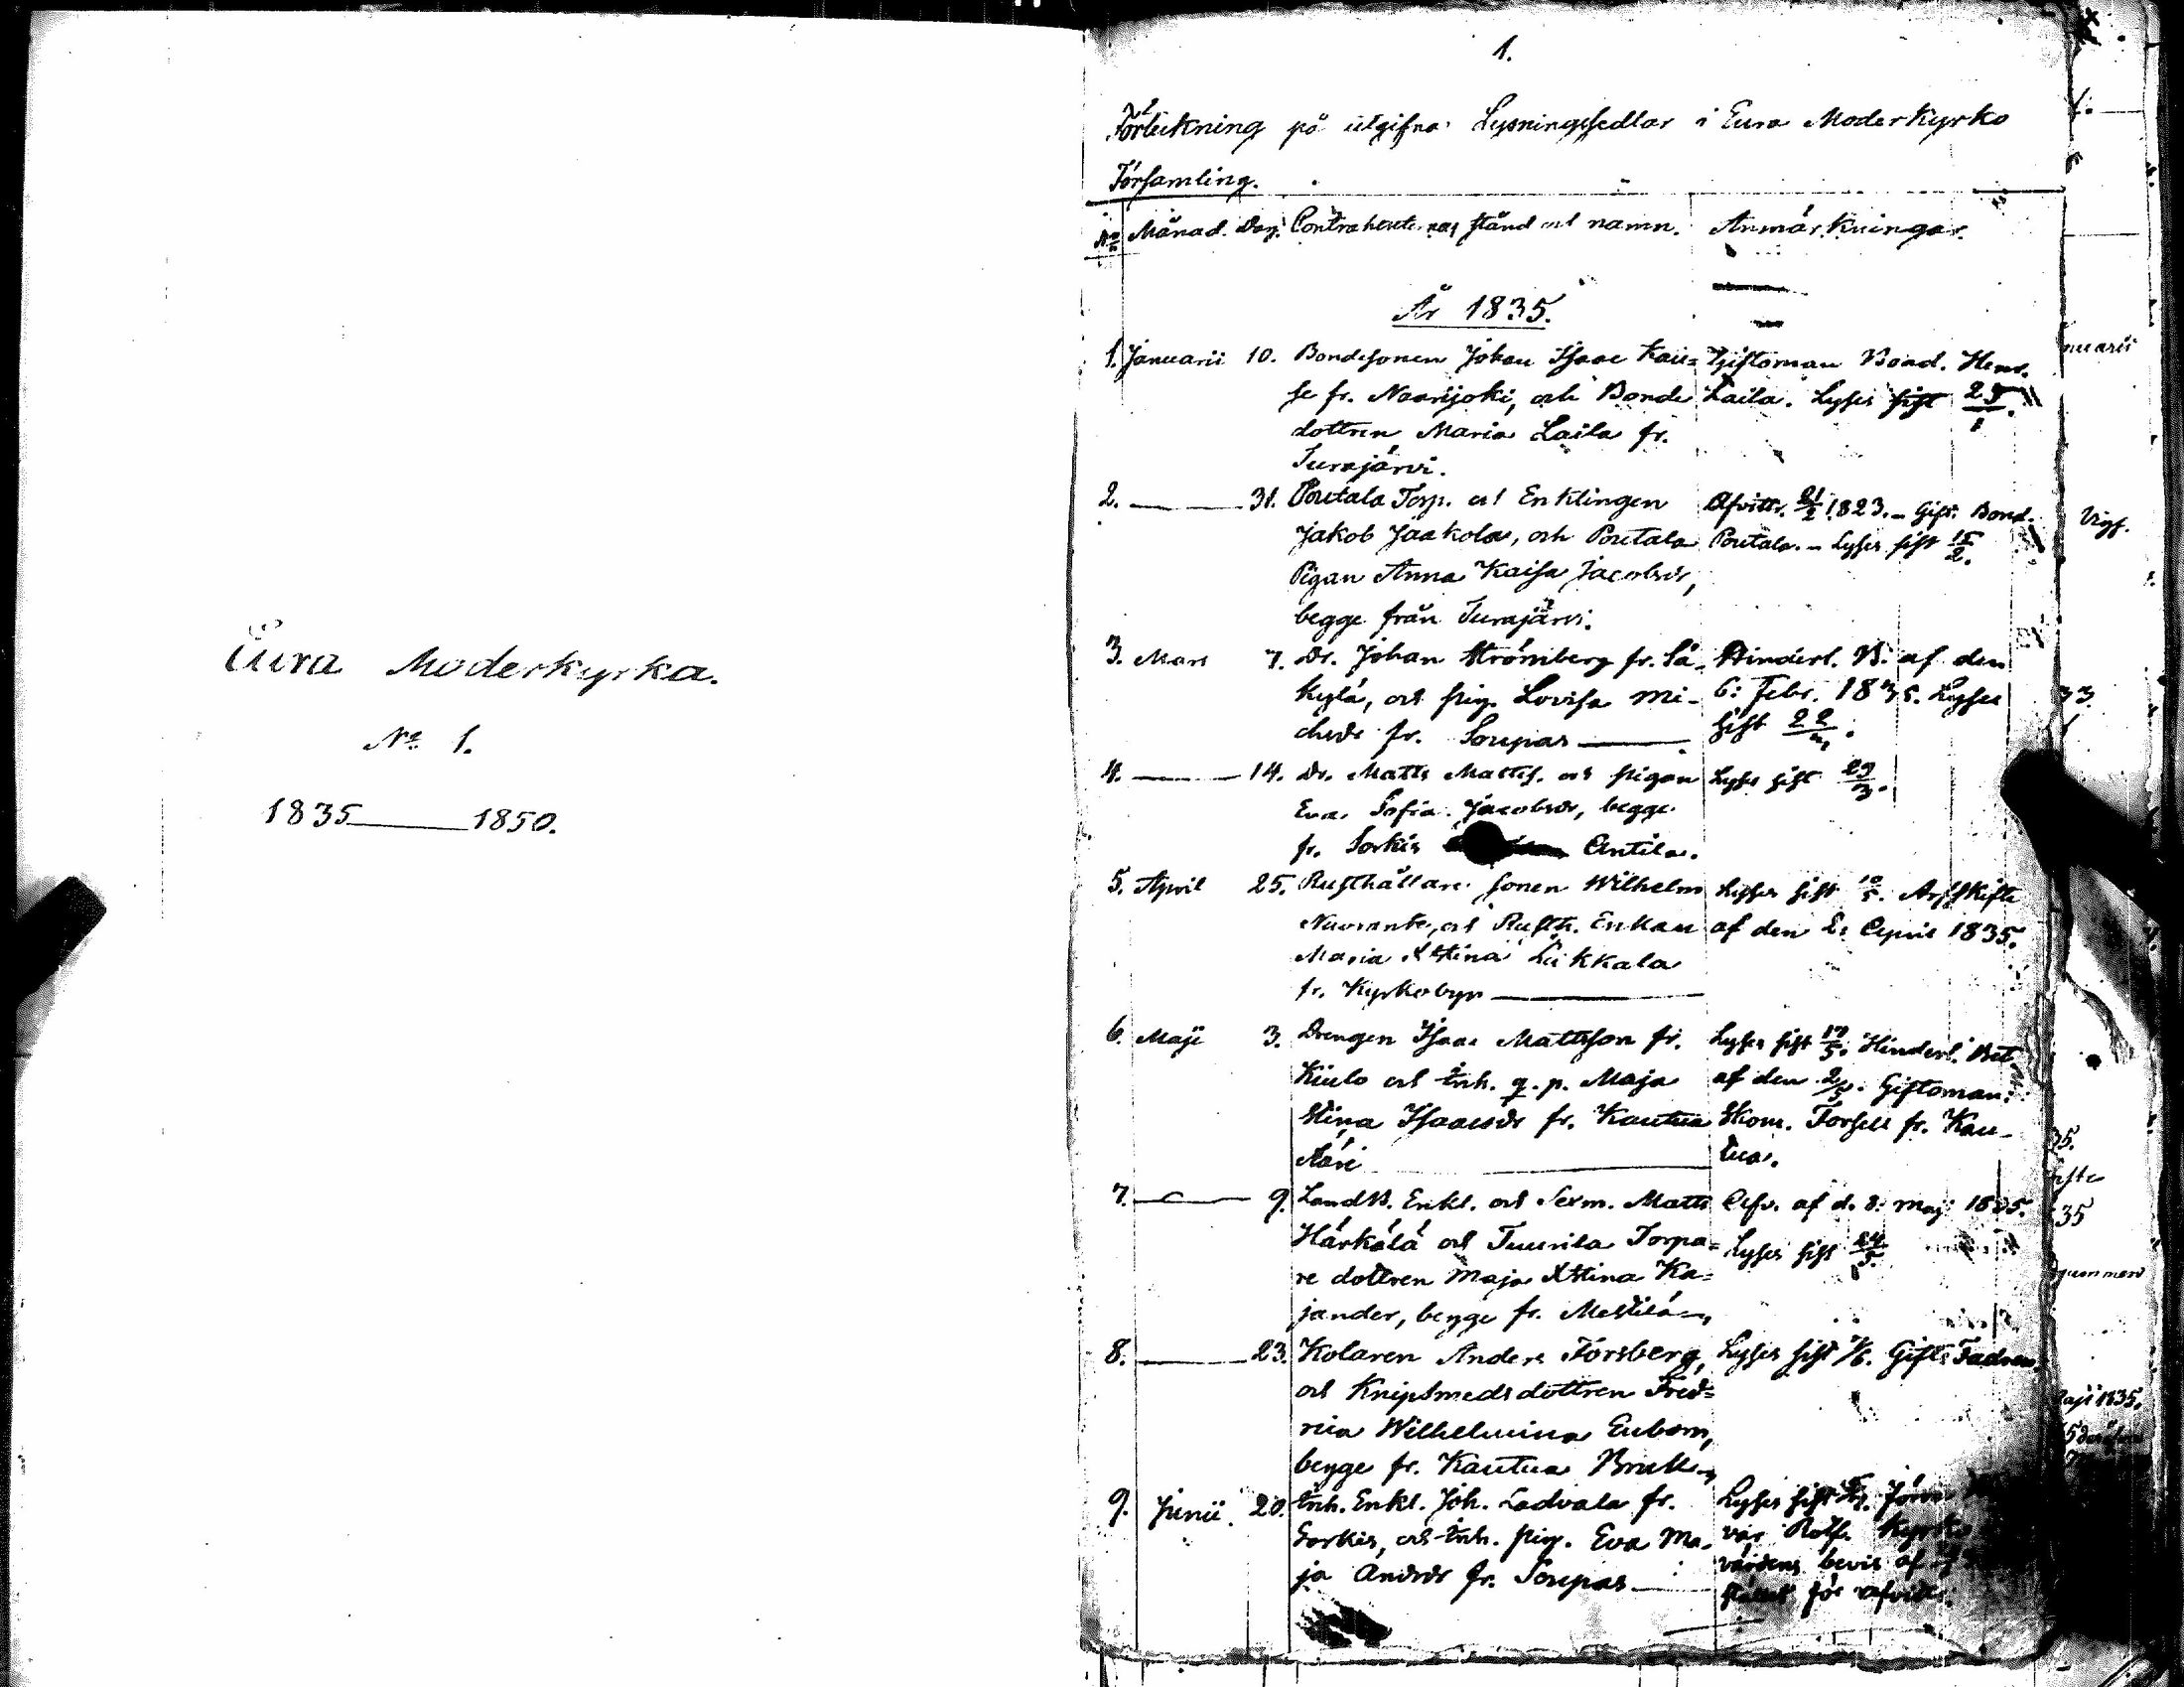 Eura Moderkyrka.
No 1.
1835 — 1850.
1.
Förteckning på utgifna Lysningssedlar i Eura Moderkyrko
Församling.
No Månad. Dag. Contrahenternas stånd och namn. Anmärkningar.
År 1835.
1. Januarii 10. Bondesonen Johan Isaac Kau= Giftoman Bond. Henr.
se fr. Naarijoki, och Bonde Laila. Lyses sist 25/1.
dottren Maria Laila fr.
Turajärvi.
2. — 31. Poutala Torp. och Enklingen Afvittr. 21/2 1823. - Gift. Bond.
Jakob Jaakola, och Poutala Poutala. - Lyses sist 15/2.
Pigan Anna Kaisa Jacobsdr,
begge från Turajärvi.
3. Mars 7. Dr. Johan Strömberg fr. Sä- Hinderl. B. af den
kylä, och pig. Lovisa Mi- 6: Febr. 1835. Lyses
chsdr fr. Sorupas — sist 22/3.
4. — 14. Dr. Matts Mattss. och pigan Lyses sist 29/3.
Eva Sofia Jacobsdr, begge
fr. Sorkis Antila.
5. April 25. Rusthållare sonen Wilhelm Lyses sist 10/5. Arfskifte
och Rusth. Enkan af den April 1835.
Maria Stina Liikkala
fr. Kyrkobyn —
6. Maji 3. Drengen Isaac Mattsson fr. Lyses sist 17/5. Hinderl. Bet
Kiulo och Inh. q. p. Maja af den 2/5. Giftoman:
Stina Isaacsdr fr. Kautua Skom. Forsell fr. Kau-
Näri — tua.
7. — 9. Landb. Enkl. och Sexm. Matts Afv. af d. 8: Maj 1835.
Härkälä och Tuurila Torpa= Lyses sist 24/5.
re dottren Maja Stina Ka=
jander, begge fr. Mestilä —
8. — 23. Kolaren Anders Forsberg, Lyses sist 7/6. Gift: Fadren.
och Knipsmedsdottren Fred=
rica Wilhelmina Eubom,
begge fr. Kautua Bruk —
9. Junii 20. Inh. Enkl. Joh. Ladvala fr. Lyses sist
Sorkis, och Inh. pig. Eva Ma- var Rotf. Kyrko
ja Andrsdr fr. Sorupas — värdens bevis af
stället för afvittr.